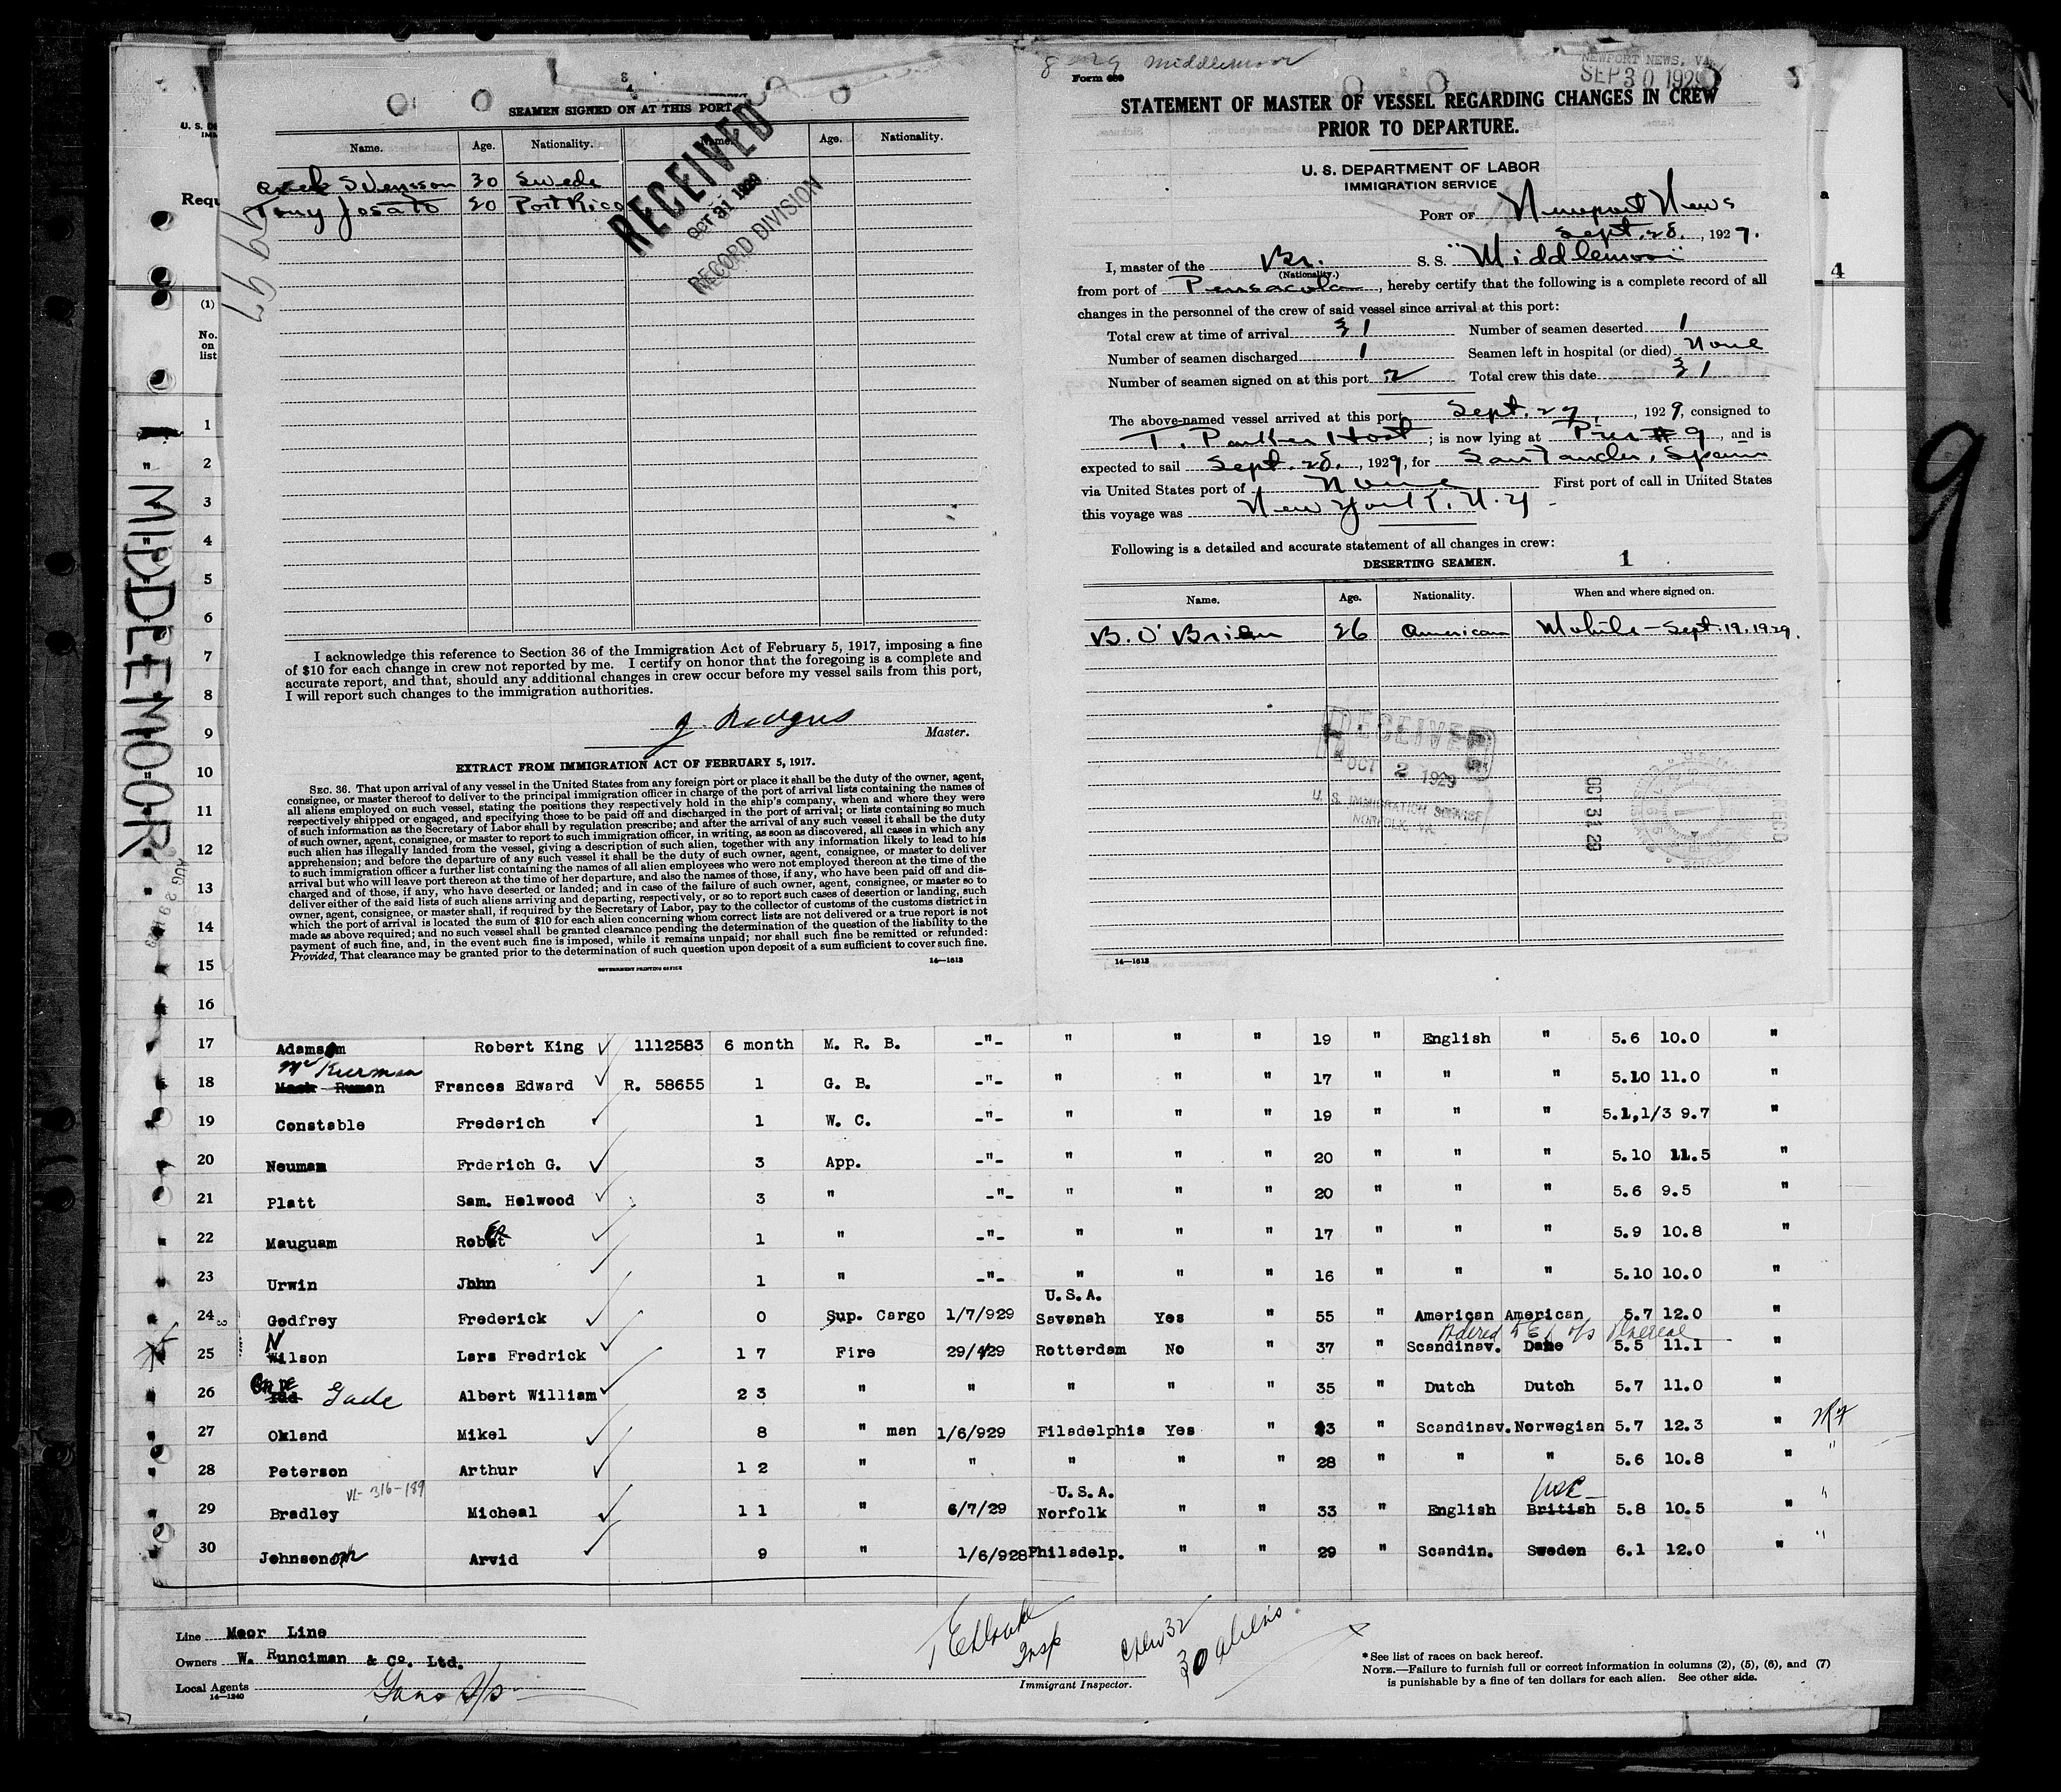 8-29 Middlemoor
Form 689
NEWPORT NEWS, VA.
SEP 30 1929
STATEMENT OF MASTER OF VESSEL REGARDING CHANGES IN CREW
PRIOR TO DEPARTURE.
U. S. DEPARTMENT OF LABOR
IMMIGRATION SERVICE
PORT OF Newport News
Sept. 28, 1929.
I, master of the Br. S. S. "Middlemoor"
(Nationality.)
from port of Pensacola, hereby certify that the following is a complete record of all
changes in the personnel of the crew of said vessel since arrival at this port:
Total crew at time of arrival 31 Number of seamen deserted 1
Number of seamen discharged 1 Seamen left in hospital (or died) None
Number of seamen signed on at this port 2 Total crew this date 31
The above-named vessel arrived at this port Sept. 27, 1929, consigned to
T. Parker Host; is now lying at Pier # 9, and is
expected to sail Sept. 28, 1929, for Santander, Spain
via United States port of None First port of call in United States
this voyage was New York, N.Y.-
Following is a detailed and accurate statement of all changes in crew:
DESERTING SEAMEN. 1
Name. Age. Nationality. When and where signed on.
B. O'Brien 26 American Mobile - Sept. 19. 1929.
RECEIVED
OCT 2 1929
U. S. IMMIGRATION SERVICE
NORFOLK, VA.
OCT 31 29
REC'D
14—1613
SEAMEN SIGNED ON AT THIS PORT.
Name. Age. Nationality. Name. Age. Nationality.
Svensson 30 Swede
Tony Josato 20 Port Rico
RECEIVED
OCT 31 1929
RECORD DIVISION
I acknowledge this reference to Section 36 of the Immigration Act of February 5, 1917, imposing a fine
of $10 for each change in crew not reported by me. I certify on honor that the foregoing is a complete and
accurate report, and that, should any additional changes in crew occur before my vessel sails from this port,
I will report such changes to the immigration authorities.
Master.
EXTRACT FROM IMMIGRATION ACT OF FEBRUARY 5, 1917.
SEC. 36. That upon arrival of any vessel in the United States from any foreign port or place it shall be the duty of the owner, agent,
consignee, or master thereof to deliver to the principal immigration officer in charge of the port of arrival lists containing the names of
all aliens employed on such vessel, stating the positions they respectively hold in the ship's company, when and where they were
respectively shipped or engaged, and specifying those to be paid off and discharged in the port of arrival; or lists containing so much
of such information as the Secretary of Labor shall by regulation prescribe; and after the arrival of any such vessel it shall be the duty
of such owner, agent, consignee, or master to report to such immigration officer, in writing, as soon as discovered, all cases in which any
such alien has illegally landed from the vessel, giving a description of such alien, together with any information likely to lead to his
apprehension; and before the departure of any such vessel it shall be the duty of such owner, agent, consignee, or master to deliver
to such immigration officer a further list containing the names of all alien employees who were not employed thereon at the time of the
arrival but who will leave port thereon at the time of her departure, and also the names of those, if any, who have been paid off and dis-
charged and of those, if any, who have deserted or landed; and in case of the failure of such owner, agent, consignee, or master so to
deliver either of the said lists of such aliens arriving and departing, respectively, or so to report such cases of desertion or landing, such
owner, agent, consignee, or master shall, if required by the Secretary of Labor, pay to the collector of customs of the customs district in
which the port of arrival is located the sum of $10 for each alien concerning whom correct lists are not delivered or a true report is not
made as above required; and no such vessel shall be granted clearance pending the determination of the question of the liability to the
payment of such fine, and, in the event such fine is imposed, while it remains unpaid; nor shall such fine be remitted or refunded:
Provided, That clearance may be granted prior to the determination of such question upon deposit of a sum sufficient to cover such fine.
GOVERNMENT PRINTING OFFICE 14—1613
MIDDLEMOOR
4
9
(1)
No.
on
list
1
2
3
4
5
6
7
8
9
10
11
12
13
14
15
16
17 Adamson Robert King 1112583 6 month M. R. B. -"- " " " 19 " English " 5.6 10.0 "
McKiernan
18 Frances Edward R. 58655 1 G. B. -"- " " " 17 " " " 5.10 11.0 "
19 Constable Frederich 1 W. C. -"- " " " 19 " " " 5.1,1/3 9.7 "
20 Neuman Frderich G. 3 App. -"- " " " 20 " " " 5.10 11.5 "
21 Platt Sam. Helwood 3 " -"- " " " 20 " " " 5.6 9.5 "
22 Mauguam Robert 1 " -"- " " " 17 " " " 5.9 10.8 "
23 Urwin John 1 " -"- " " " 16 " " " 5.10 10.0 "
U.S.A.
24 Godfrey Frederick 0 Sup. Cargo 1/7/929 Savenah Yes " 55 " American American 5.7 12.0 "
25 Nilson Lars Fredrick 1 7 Fire 29/4/29 Rotterdam No " 37 " Scandinav. Dane 5.5 11.1 "
26 Gade Albert William 2 3 " " " " " 35 " Dutch Dutch 5.7 11.0 "
27 Okland Mikel 8 " man 1/6/929 Filadelphia Yes " 33 " Scandinav. Norwegian 5.7 12.3 "
28 Peterson Arthur 1 2 " " " " " 28 " " " 5.6 10.8 "
VL-316-189
U.S.A. USC
29 Bradley Micheal 1 1 " 6/7/29 Norfolk " " 33 " English British 5.8 10.5 " "
30 Johnson Arvid 9 " 1/6/928 Philadelp. " " 29 " Scandin. Sweden 6.1 12.0 " "
Line Moor Line
Owners W. Runciman & Co. Ltd.
Local Agents
14—1240
Insp
Crew 32
30 aliens
Immigrant Inspector.
* See list of races on back hereof.
NOTE.—Failure to furnish full or correct information in columns (2), (5), (6), and (7)
is punishable by a fine of ten dollars for each alien. See other side.